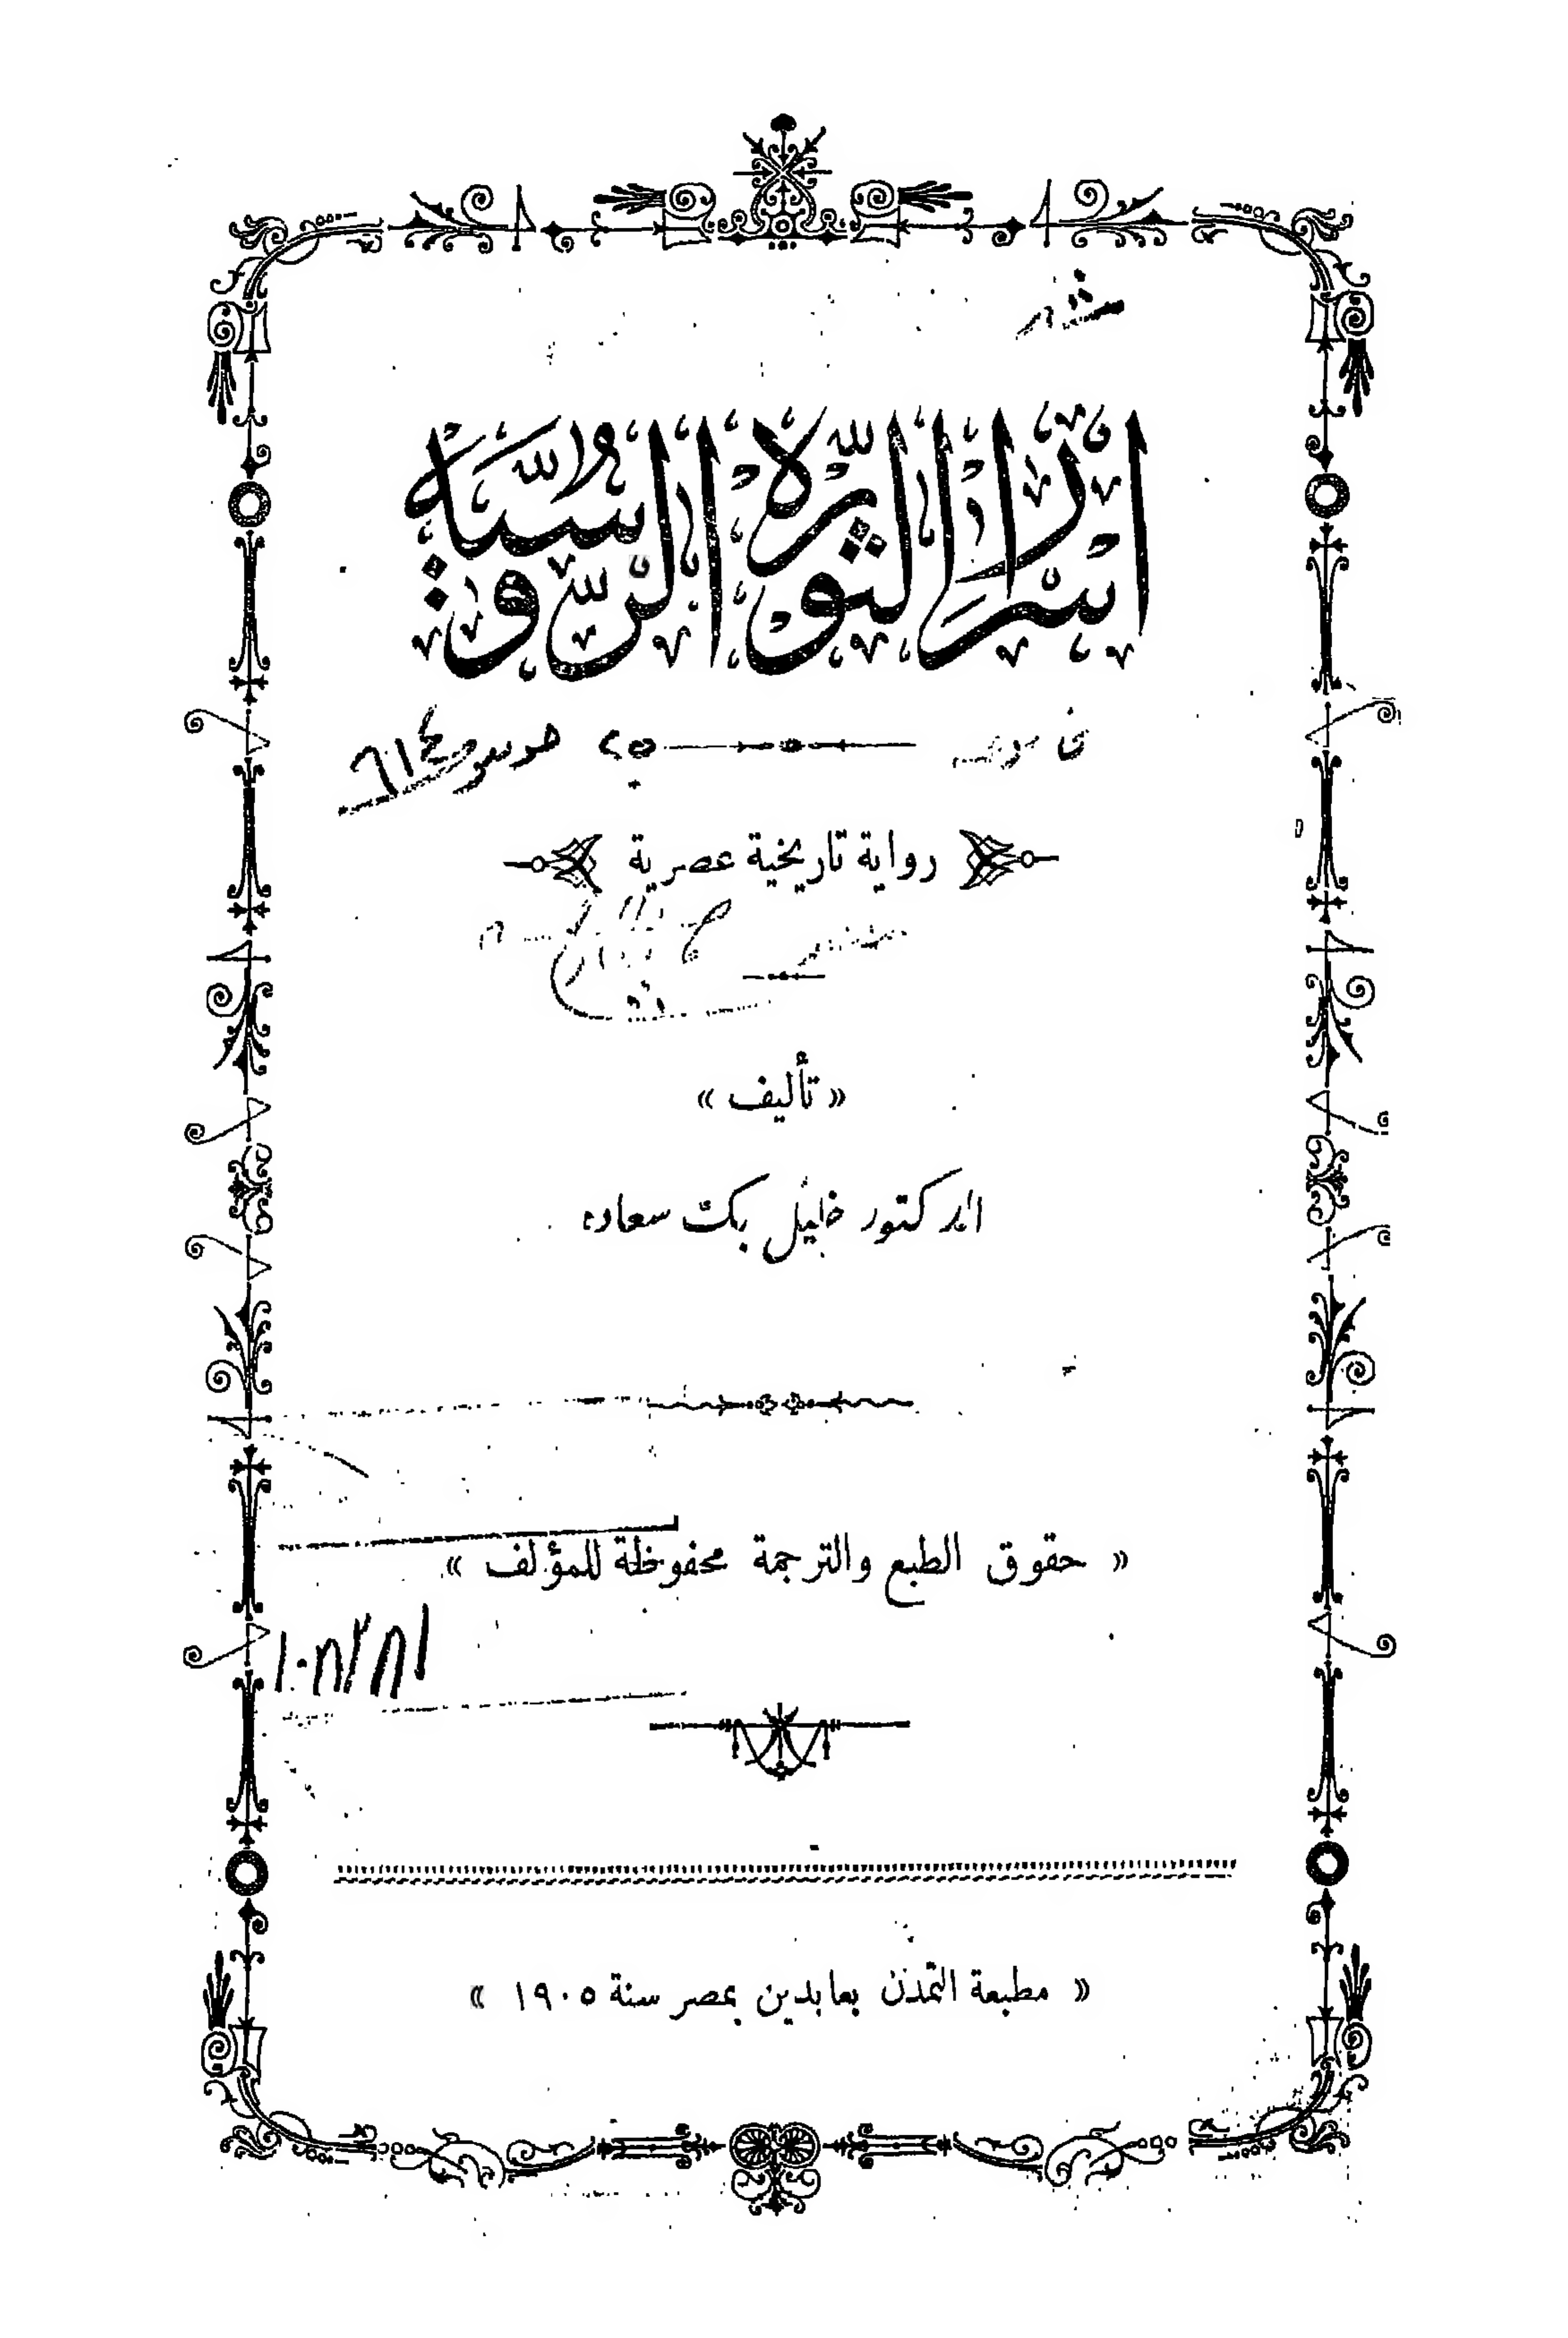 اسرار الثورة الروسية
٦١٤
رواية تاريخية عصرية
« تأليف »
الدكتور خليل بك سعاده
« حقوق الطبع والترجمة محفوظة للمؤلف »
« مطبعة التمدن بعابدين بمصر سنة ١٩٠٥ »